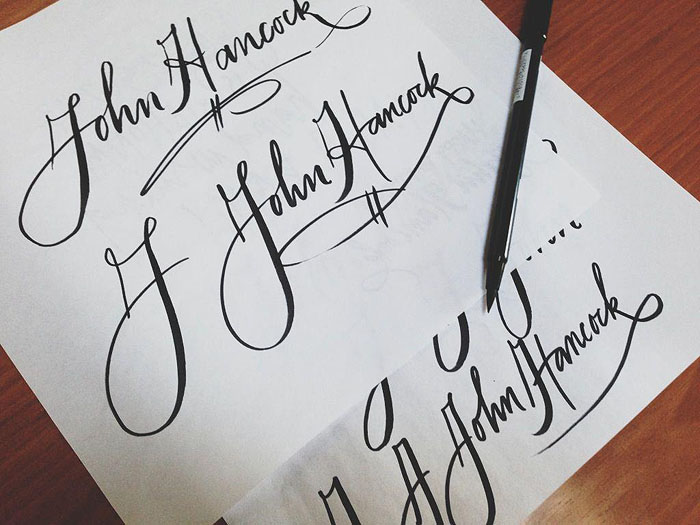 John Hancock
John Hancock
J
J J John Hancock